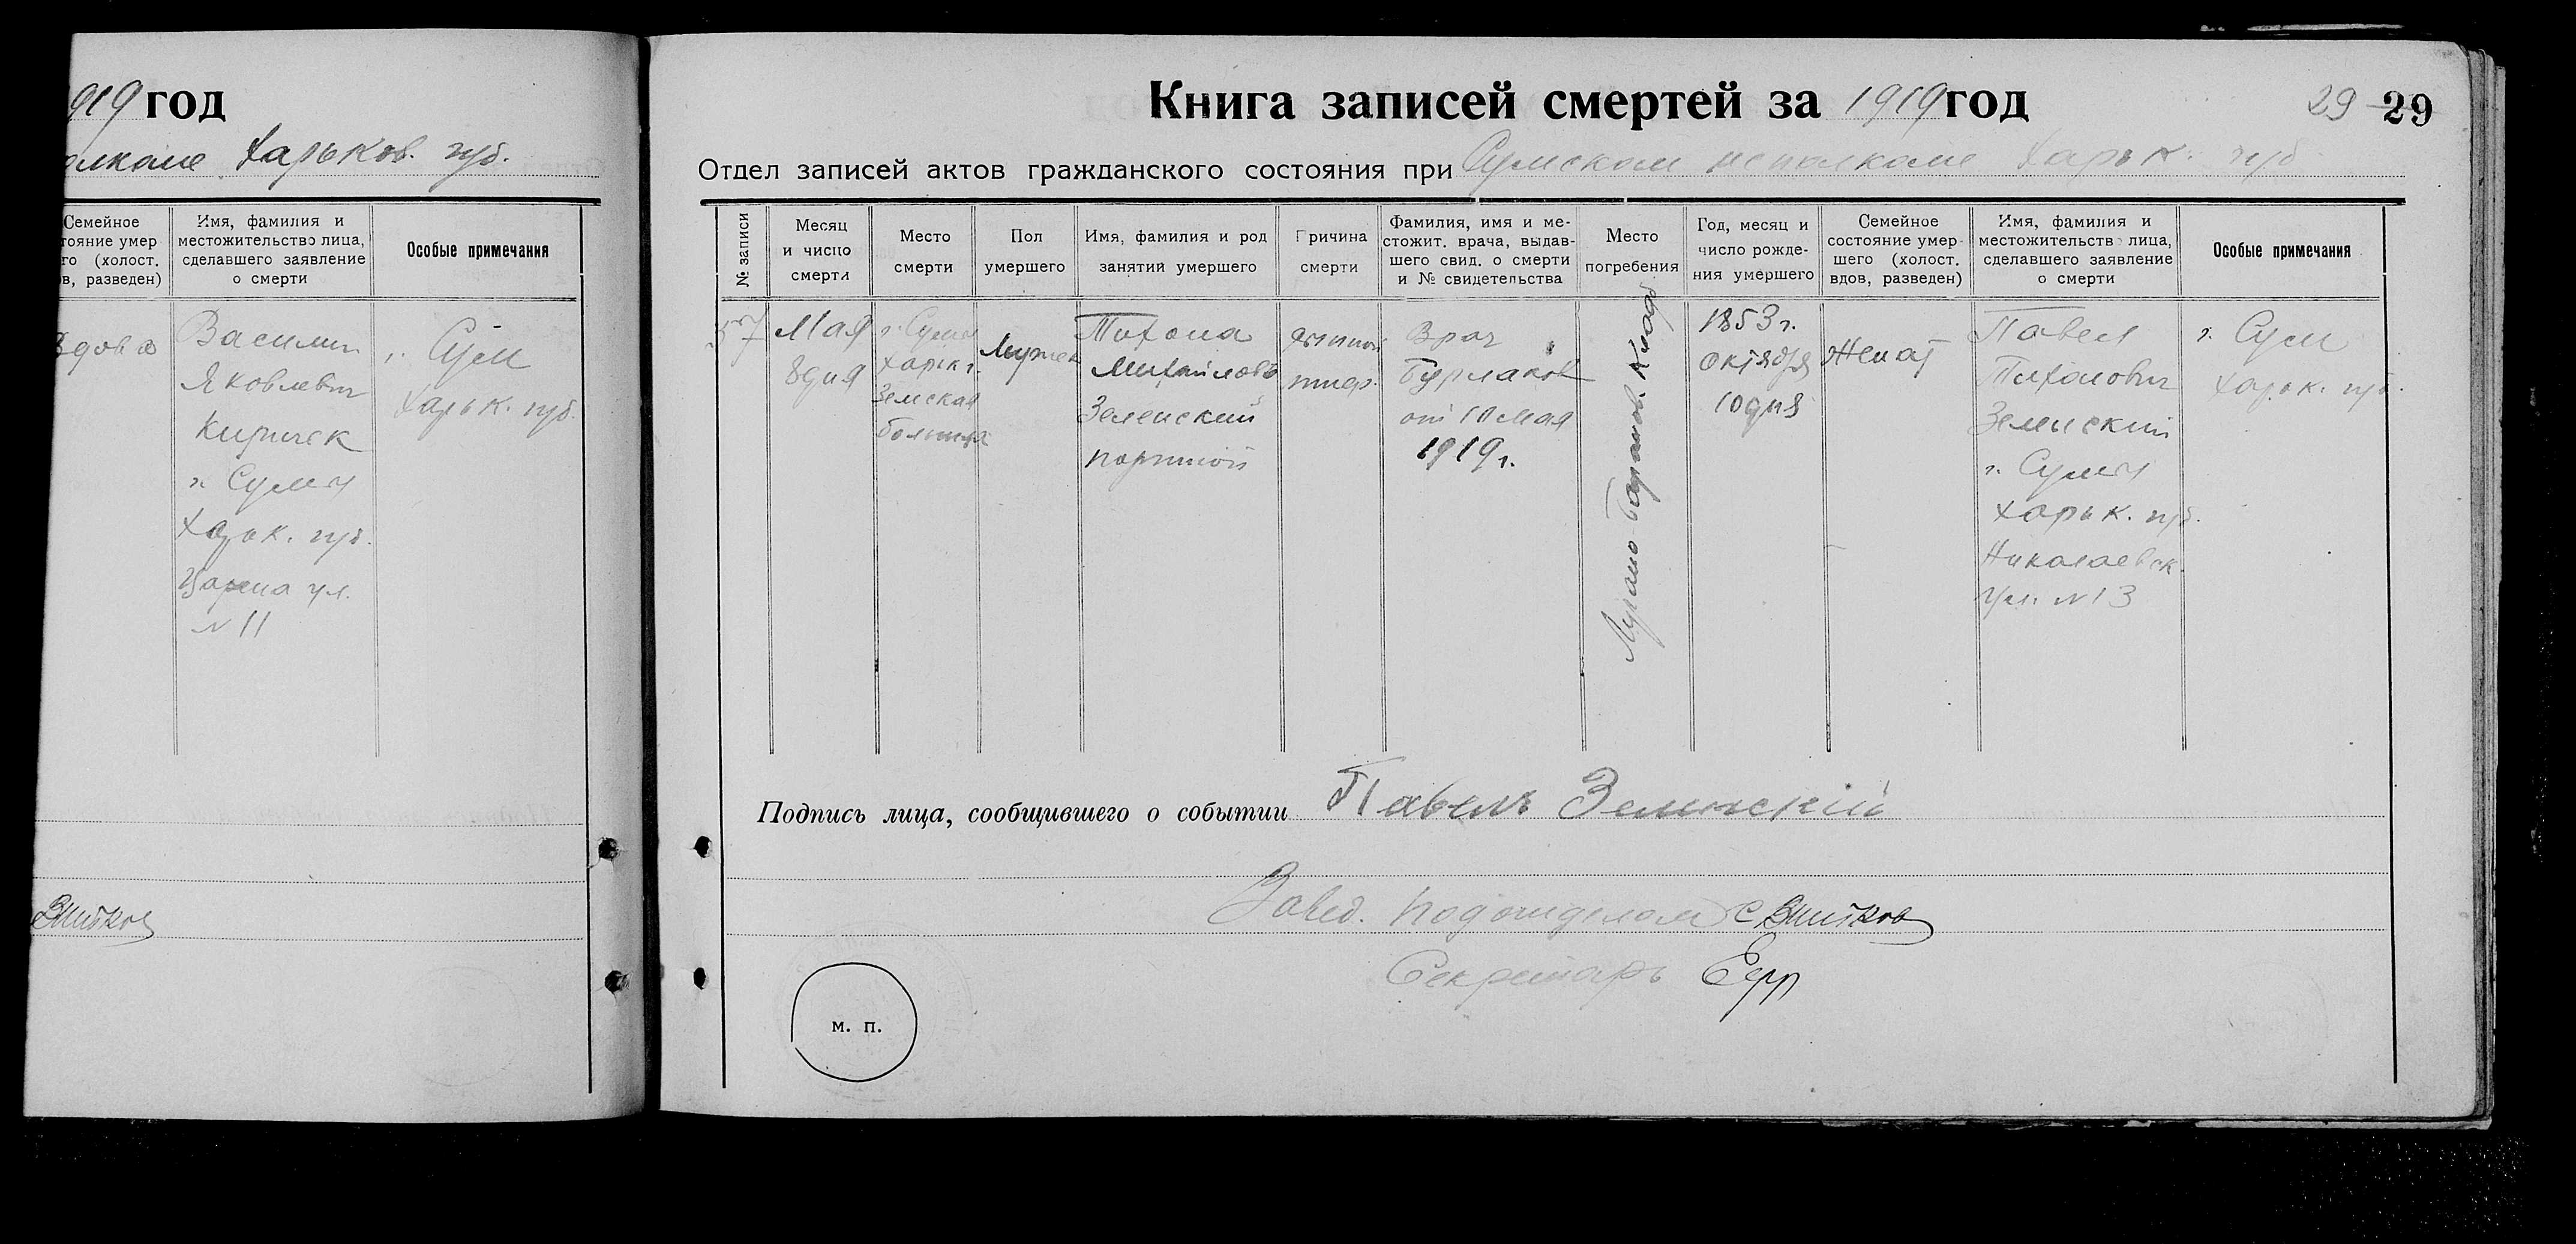 919 год
олкоме Харьков. губ.
Семейное
тояние умер
го (холост.
ов, разведен)
Имя, фамилия и
местожительство лица,
сделавшего заявление
о смерти
Особые примечания
Вдова
Василий
Яковлевич
Киричек
г. Сумы
Харьк. губ.
ул.
№ 11
г. Сум
Харьк. губ.
Книга записей смертей за 1919 год
29 29
Отдел записей актов гражданского состояния при Сумском исполкоме Харьк. губ
№ записи
Месяц
и число
смерти
Место
смерти
Пол
умершего
Имя, фамилия и род
занятий умершего
Причина
смерти
Фамилия, имя и ме-
стожит. врача, выдав-
шего свид. о смерти
и № свидетельства
Место
погребения
Год, месяц и
число рожде-
ния умершего
Семейное
состояние умер-
шего (холост.
вдов, разведен)
Имя, фамилия и
местожительство лица,
сделавшего заявление
о смерти
Особые примечания
57
Мая
8 дня
г. Сумы
Харьк г.
Земская
больница
Мужск
Тихона
Михайлов
Зеленский
портной
сыпной
тиф.
Врач
Бурлаков
от 10 Мая
1919 г.
Кладб
1853 г.
Октября
10 дня
Женат
Павел
Тихонович
Зеленский
г. Сумы
Харьк. губ.
Николаевск.
ул. № 13
г. Сум
Харьк. губ.
Подпись лица, сообщившего о событии Павелъ Зеленскій
Завед. подотделом
Секретарь
м. п.